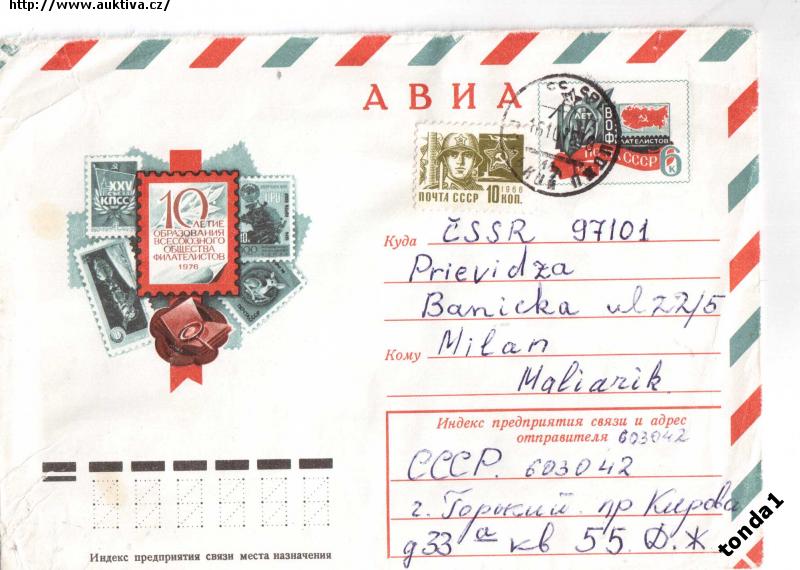 http://www.auktiva.cz/
АВИА
XXV
СЪЕЗД
КПСС
10 ЛЕТИЕ
ОБРАЗОВАНИЯ
ВСЕСОЮЗНОГО
ОБЩЕСТВА
ФИЛАТЕЛИСТОВ
1976
ЛЕТ
ВОФ
ФИЛАТЕЛИСТОВ
ПОЧТА СССР
6 К
1966
ПОЧТА СССР 10 КОП.
Куда ČSSR 97101
Prievidza
Banicka ul 22/5
Кому Milan
Maliarik
Индекс предприятия связи и адрес
отправителя 603042
СССР. 603042
г. Горький. пр Кирова
д 33 а кв 55. Д.Ж
Индекс предприятия связи места назначения
tonda1